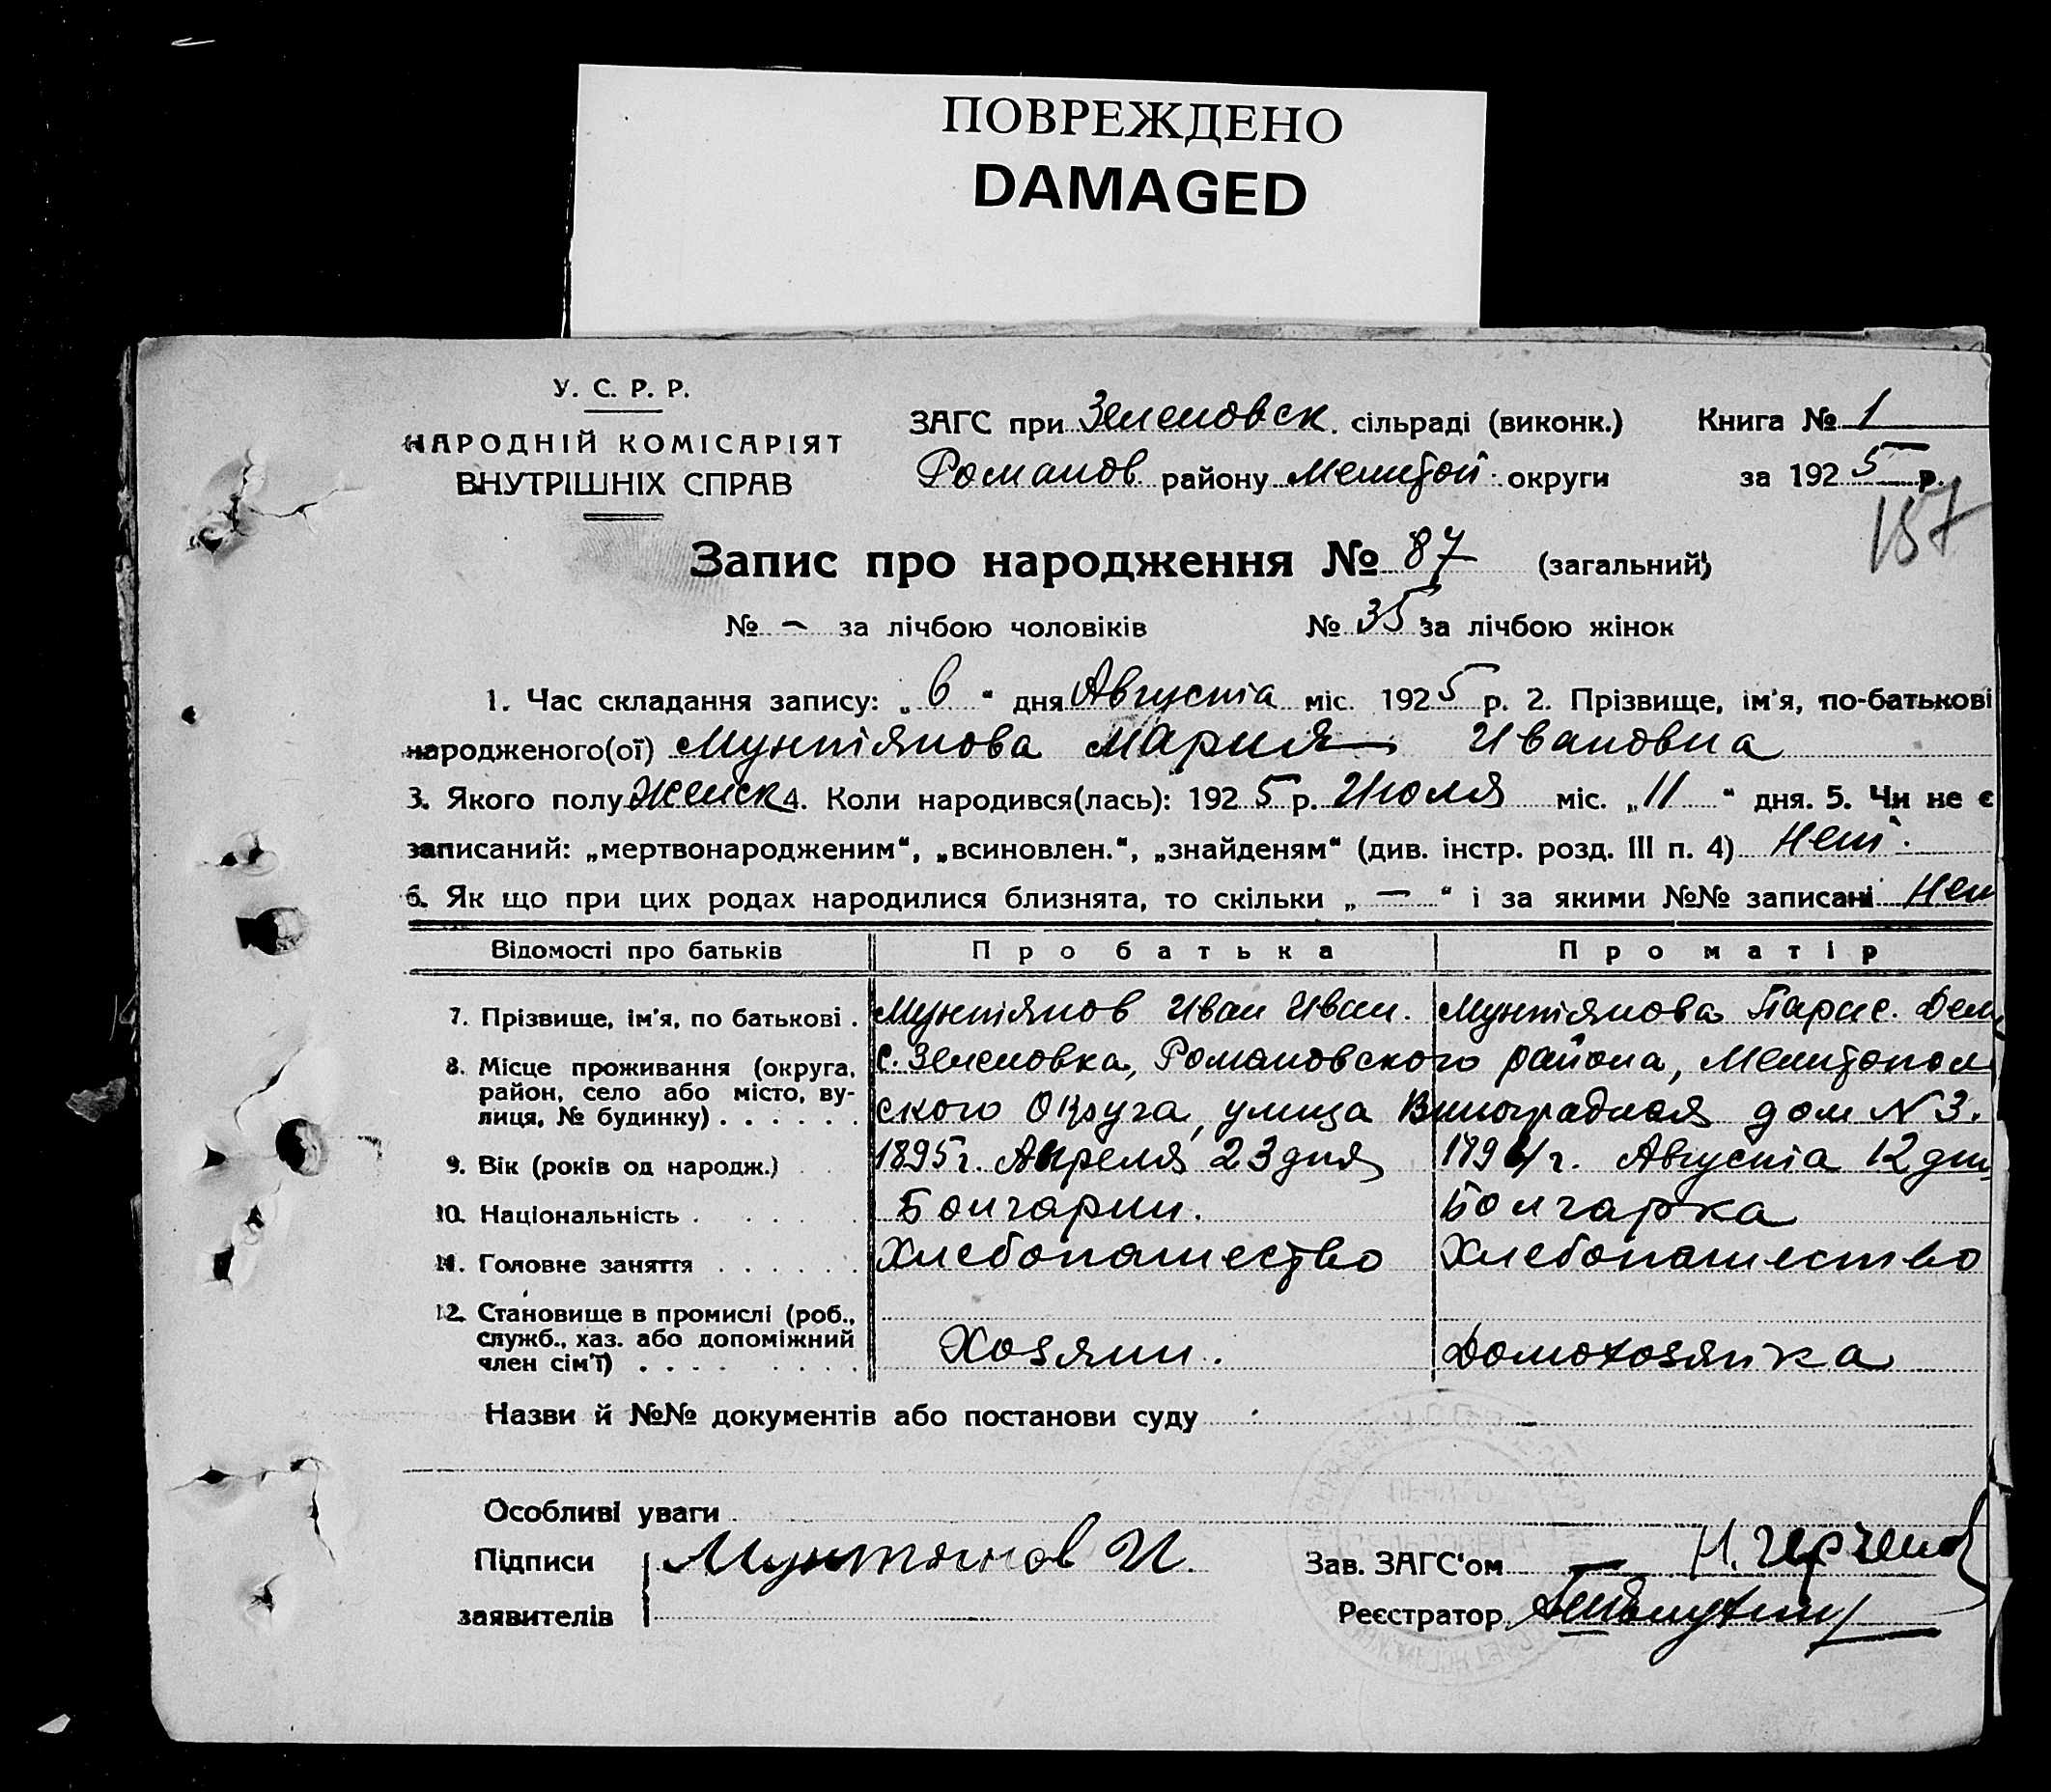 ПОВРЕЖДЕНО
DAMAGED
У. С. Р. Р.
НАРОДНІЙ КОМІСАРІЯТ
ВНУТРІШНІХ СПРАВ
ЗАГС при Зеленовск. сільраді (виконк.) Книга № 1
Романов. району Мелитой. округи за 1925 р.
157
Запис про народження № 87 (загальний)
№ – за лічбою чоловіків № 35 за лічбою жінок
1. Час складання запису: „6“ дня Августа міс. 1925 р. 2. Прізвище, ім'я, по-батькові
народженого(ої) Мунтянова Мария Ивановна
3. Якого полу Женск 4. Коли народився(лась): 1925 р. Июля міс. „11“ дня. 5. Чи не є
записаний: „мертвонародженим“, „всиновлен.“, „знайденям“ (див. інстр. розд. III п. 4) Нет.
6. Як що при цих родах народилися близнята, то скільки „—“ і за якими №№ записані Нет
Відомості про батьків Про батька Про матір
7. Прізвище, ім'я, по батькові . Мунтянов Иван Иван. Мунтянова Парас. Дем
8. Місце проживання (округа, район, село або місто, ву- лиця, № будинку) . . . . . . с. Зеленовка, Романовского района, Мелитопол
ского Округа, улица Виноградная дом N 3.
9. Вік (років од народж.) 1895 г. Апреля 23 дня 1894 г. Августа 12 дня
10. Національність . Болгарин. Болгарка
11. Головне заняття . . . . . . Хлебопашество Хлебопашество
12. Становище в промислі (роб.,
служб., хаз. або допоміжний
член сім'ї) . . . . Хозяин. Домохозяйка
Назви й №№ документів або постанови суду
Особливі уваги
Підписи Мунтянов И. Зав. ЗАГС'ом
заявителів Реєстратор